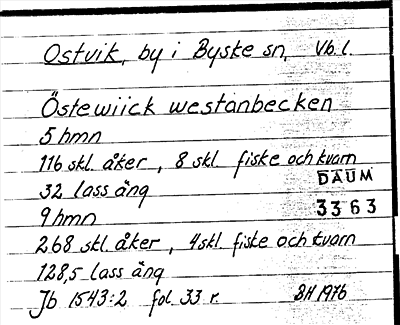 Ostvik, by i Byske sn, Vb l.
Östewiick westanbecken
5 hmn
116 skl åker, 8 skl fiske och kvarn
DAUM
32 lass äng
3363
9 hmn
268 skl åker, 4 skl fiske och kvarn
128,5 lass äng
Jb 1543:2 fol. 33 r. BH 1976